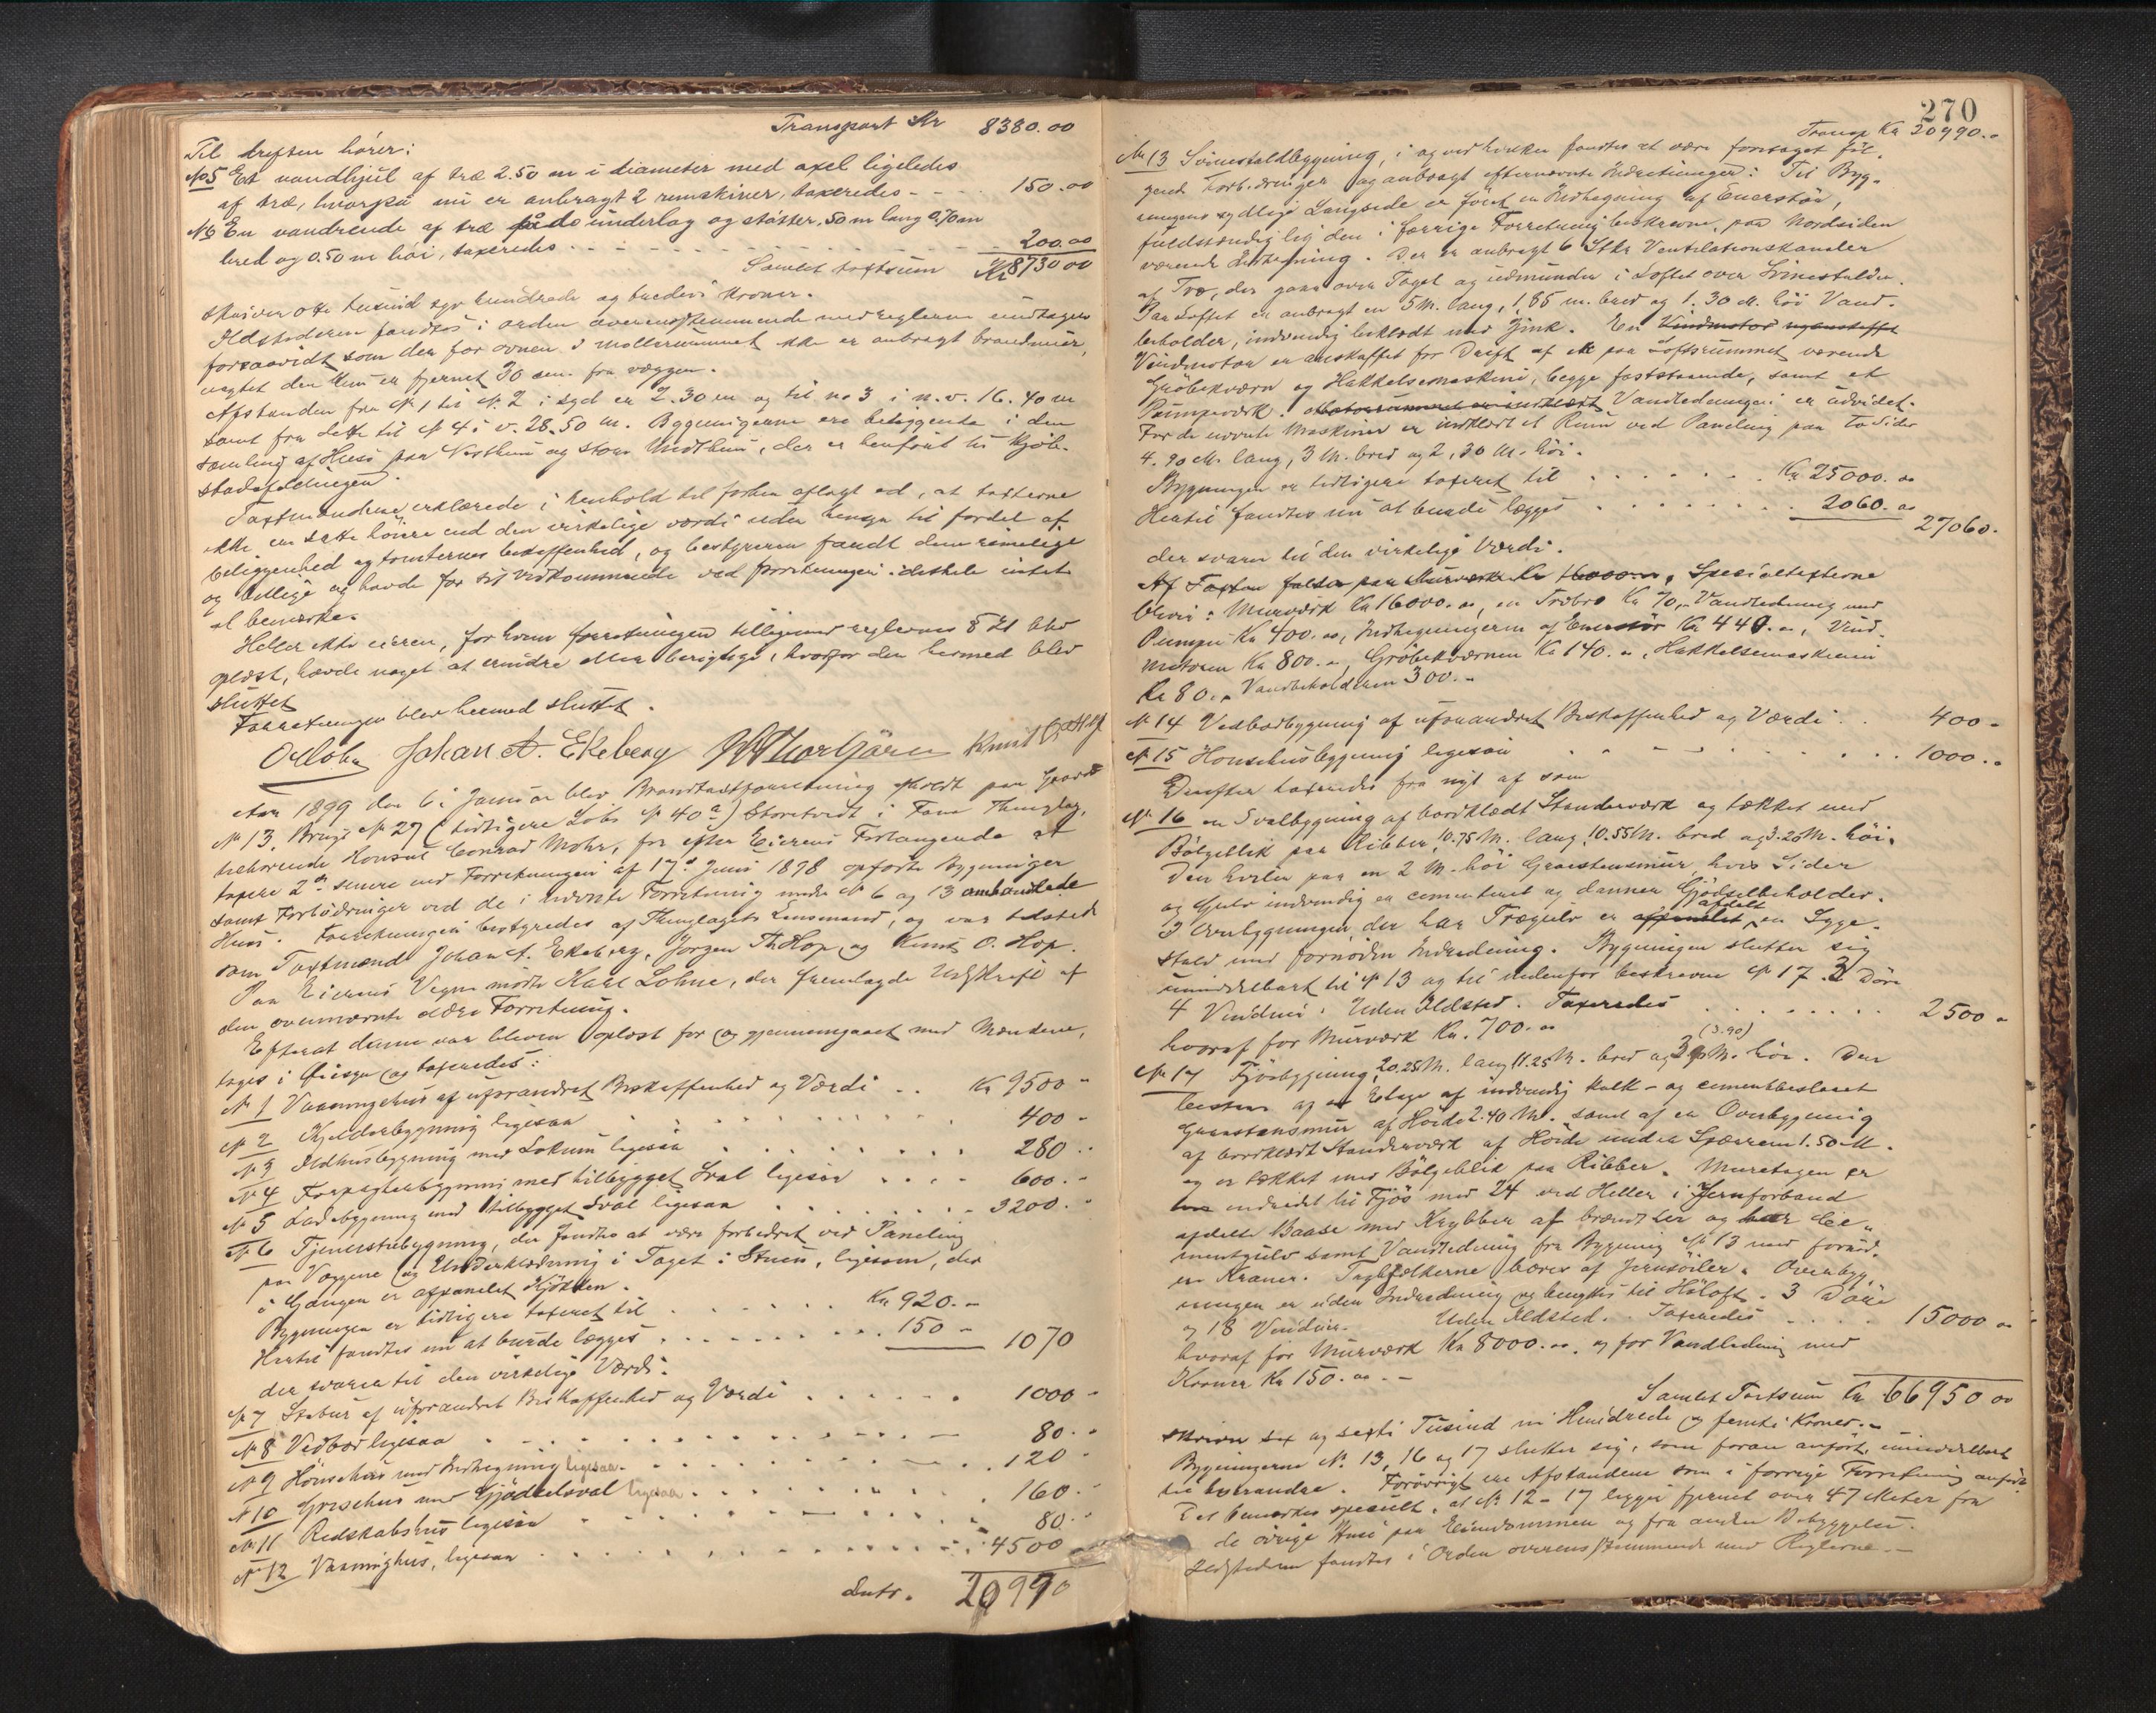 Transport Kr 8380.00
Til driften hører:
No 5 Et vandhjul af træ 2.50 m i diameter med axel ligeledes
af træ, hvorpaa nu er anbragt 2 remskiver, taxeredes - - - 150.00
No 6 En vandrende af træ både underlag og støtter, 50 m lang 0.70 m
bred og 0.50 m høi, taxeredes - - - 200.00
Samlet taxtsum Kr 8730.00
skriver otte tusind syv hundrede og tredevi kroner.
Ildstederne fandtes i orden overensstemmende med reglerne undtagen
forsaavidt som der for ovnen i møllerummet ikke er anbragt brandmur,
uagtet den kun er fjernet 30 cm. fra væggen.
Afstanden fra No 1 til No 2 i syd er 2.30 m og til no 3 i n.v. 16.40 m
samt fra dette til No 4 i v. 28.50 m. Bygningerne ere beliggende i den
samling af Huse paa Vestlun og store Midtlun, der er henført til Kjøb-
stadsfoldningen.
Taxtmændene erklærede i henhold til forhen aflagt ed, at taxterne
ikke ere satte høiere end den virkelige værdi uden hensyn til fordel af
beliggenhed og tomternes beskaffenhed, og bestyreren fandt dem rimelige
og billige og havde for sit vedkommende ved forretningen idethele intet
at bemærke.
Heller ikke eieren, for hvem forretningen tilligemed reglernes § 21 blev
oplæst, havde noget at erindre eller berigtige, hvorfor den hermed blev
sluttet
Forretningen blev hermed sluttet.
Johan A. Ekeberg Knut O. Hop
Aar 1899 den 6 i Januar blev Brandtaxtforretning afholdt paa Gaards
No 13, Brugs No 27 (tidligere Løbe No 40 a) Storetvedt i Fana Thinglag,
tilhørende Konsul Conrad Mohr, for efter Eierens Forlangende at
taxere 2de senere end Forretningen af 17de Juni 1898 opførte Bygninger
samt Forbedringer ved de i nævnte Forretning under No 6 og 13 ombandlede
Huse. Forretningen bestyredes af Thinglagets Lensmand, og var tilstede
som Taxtmænd Johan A. Ekeberg, Jørgen Th. Hop og Knut O. Hop.
Paa Eierens Vegne mødte Karl Lohne, der fremlagde Udskrift af
den ovennævnte ældre Forretning.
Efterat denne var bleven oplæst for og gjennemgaaet med Mændene,
toges i Øiesyn og taxeredes:
No 1 Vaaningshus af uforandret Beskaffenhed og Værdi - - Kr 9500 -
No 2 Kjelderbygning ligesaa 400 -
No 3 Ildhusbygning med Lokum ligesaa 280 -
No 4 Forpagterbygning med tilbygget Sval ligesaa 600 -
No 5 Ladebygning med tilbygget Sval ligesaa 3200 -
No 6 Tjenerstuebygning, der fandtes at være forbedret ved Paneling
paa Væggene og Underklædning i Taget i Stuen, ligesom, der
i Gangen er afpanelet Kjøkken.
Bygningen er tidligere taxeret til Kr 920. -
Hertil fandtes nu at burde lægges 150 - 1070
der svarer til den virkelige Værdi.
No 7 Stabur af uforandret Beskaffenhed og Værdi 1000 -
No 8 Vedbod ligesaa 80. -
No 9 Hønsehus med Indhegning ligesaa. 120 -
No 10 Grisehus med Gjødselsval ligesaa 160. -
No 11 Redskabshus ligesaa 80. -
No 12 Vaaninghus, ligesaa 4500
Latr. 20990
270
Transp. Kr 20990. -
No 13 Svinestaldbygning, i og ved hvilken fandtes at være foretaget føl-
gende Forbedringer og anbragt efternævnte Indretninger: Til Byg-
ningens sydlige Langside er føiet en Indhegning af Enerstør,
fuldstændig lig den i forrige Forretning beskrevne, paa Nordsiden
værende Indhegning. Der er anbragt 6 Stkr Ventilationskanaler
af Træ, der gaar over Taget og udmunder i Loftet over Svinestalden.
Paa Loftet er anbragt en 5 M. lang, 1.85 m. bred og 1.30 M. høi Vand-
beholder, indvendig beklædt med Zink. En Vindmotor nyanskaffet
Vindmotor er anskaffet for Drift af en paa Loftsrummet værende
Grøbekværn og Hakkelsemaskine, begge faststaaende, samt et
Pumpeværk. Motorrummet er indklædt Vandledningen er udvidet.
For de nævnte Maskiner er indklædt et Rum ved Paneling paa to Sider
4.90 M. lang, 3 M. bred og 2,30 M. høi.
Bygningen er tidligere taxeret til Kr 25000. 00
Hertil fandtes nu at burde lægges 2060. 00 27060.
der svarer til den virkelige Værdi.
Af Taxten falder paa Murværk Kr 16000.-, Specialtaxterne
blive: Murværk Kr 16000.00, en Træbro Kr 70,- Vandledning med
Pumpe Kr 400.00, Indhegningerne af Enerstør Kr 440.-, Vind-
motoren Kr 800.-, Grøbekværnen Kr 140.-, Hakkelsemaskinen
Kr 80.- Vandbeholderen 300.-
No 14 Vedbodbygning af uforandret Beskaffenhed og Værdi 400 -
No 15 Hønsehusbygning ligesaa 1000. -
Derefter taxeredes fra nyt af som
No 16 en Svalbygning af bordklædt Standerværk og tækket med
Bølgeblik paa Ribber, 10.75 M. lang, 10.55 M. bred og 3.25 M. høi.
Den hviler paa en 2 M. høi Graastensmur, hvis Sider
og Gulv indvendig er cementeret og danner Gjødselbeholder.
I Overbygningen der har Trægulv er afpanelet afdelt en Syge-
stald med fornøden Indredning. Bygningen slutter sig
umiddelbart til No 13 og til nedenfor beskrevne No 17. 3 Døre
4 Vinduer. Uden Ildsted. Taxeredes 2500 -
hvoraf for Murværk Kr. 700.00
(3.90)
No 17 Fjøsbygning, 20.25 M. lang 11.25 M. bred og 3,90 M. høi. Den
bestaar af en Etage af indvendig kalk- og cementbeslaaet
Graastensmur af Høide 2.40 M. samt af en Overbygning
af bordklædt Standerværk af Høide under Spærrene 1.50 M.
og er tækket med Bølgeblik paa Ribber. Muretagen er
indredet til Fjøs med 24 ved Heller i Jernforband
afdelte Baase med Krybber af brændt Ler og har Ce-
mentgulv samt Vandledning fra Bygning No 13 med fornød-
ne Kraner. Tagbjælkerne bæres af Jernsøiler. Overbyg-
ningen er uden Indredning og benyttes til Høloft. 3 Døre
og 18 Vinduer. Uden Ildsted. Taxeredes 15000 00
hvoraf for Murværk Kr 8000.00. og for Vandledning med
Kraner Kr 150.00. -
Samlet Taxtsum Kr 66950 00
skriver sex og sexti Tusind ni Hundrede og femti Kroner. -
Bygningerne No 13, 16 og 17 slutter sig, som foran anført, umiddelbart
til hverandre. Forøvrigt ere Afstandene som i forrige Forretning anført
Det bemærkes specielt, at No 12 - 17 ligger fjernet over 47 Meter fra
de øvrige Huse paa Eiendommen og fra anden Bebyggelse.
Ildstederne fandtes i Orden overensstemmende med Reglerne. -